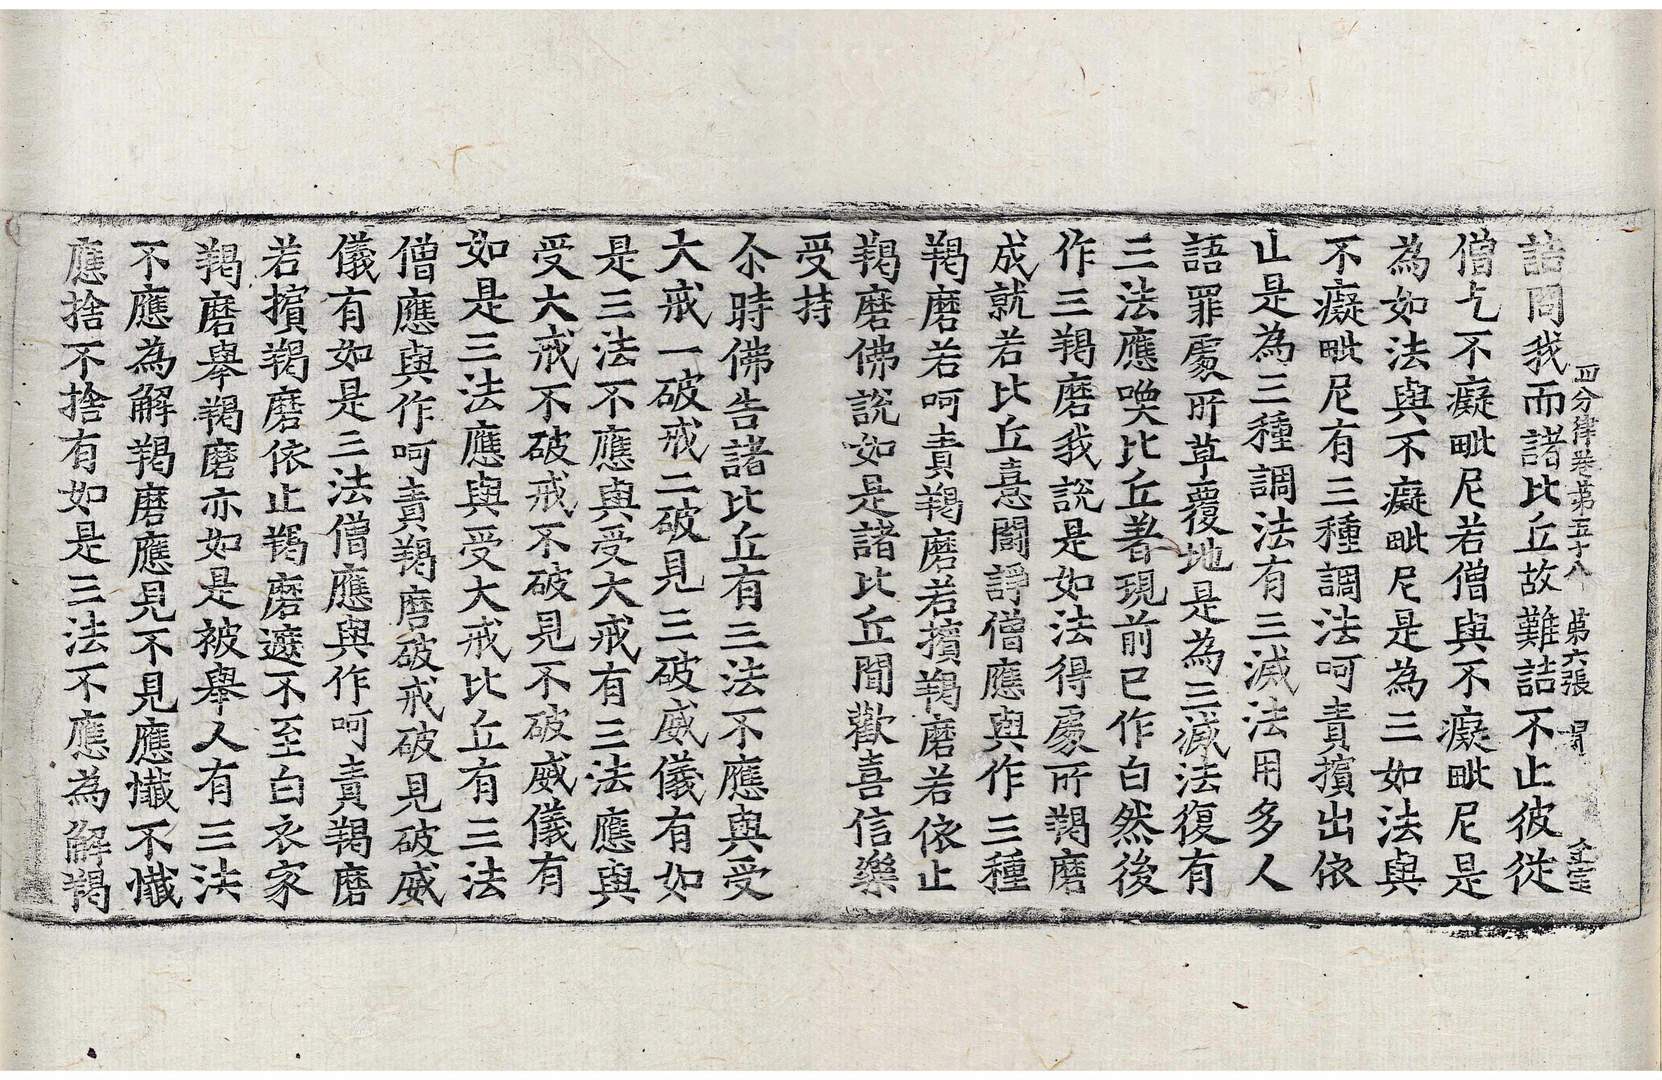 四分律卷第五十八 第六張 胃 全宝
語問我而諸比丘故難詰不止彼從
僧乞不癡毗尼若僧與不癡毗尼是
為如法與不癡毗尼是為三如法與
不癡毗尼有三種調法呵責擯出依
止是為三種調法有三滅法用多人
語罪處所草覆地是為三滅法復有
三法應喚比丘著現前已作白然後
作三羯磨我說是如法得處所羯磨
成就若比丘憙鬪諍僧應與作三種
羯磨若呵責羯磨若擯羯磨若依止
羯磨佛說如是諸比丘聞歡喜信樂
受持
尒時佛告諸比丘有三法不應與受
大戒一破戒二破見三破威儀有如
是三法不應與受大戒有三法應與
受大戒不破戒不破見不破威儀有
如是三法應與受大戒比丘有三法
僧應與作呵責羯磨破戒破見破威
儀有如是三法僧應與作呵責羯磨
若擯羯磨依止羯磨遮不至白衣家
羯磨舉羯磨亦如是被舉人有三法
不應為解羯磨應見不見應懺不懺
應捨不捨有如是三法不應為解羯